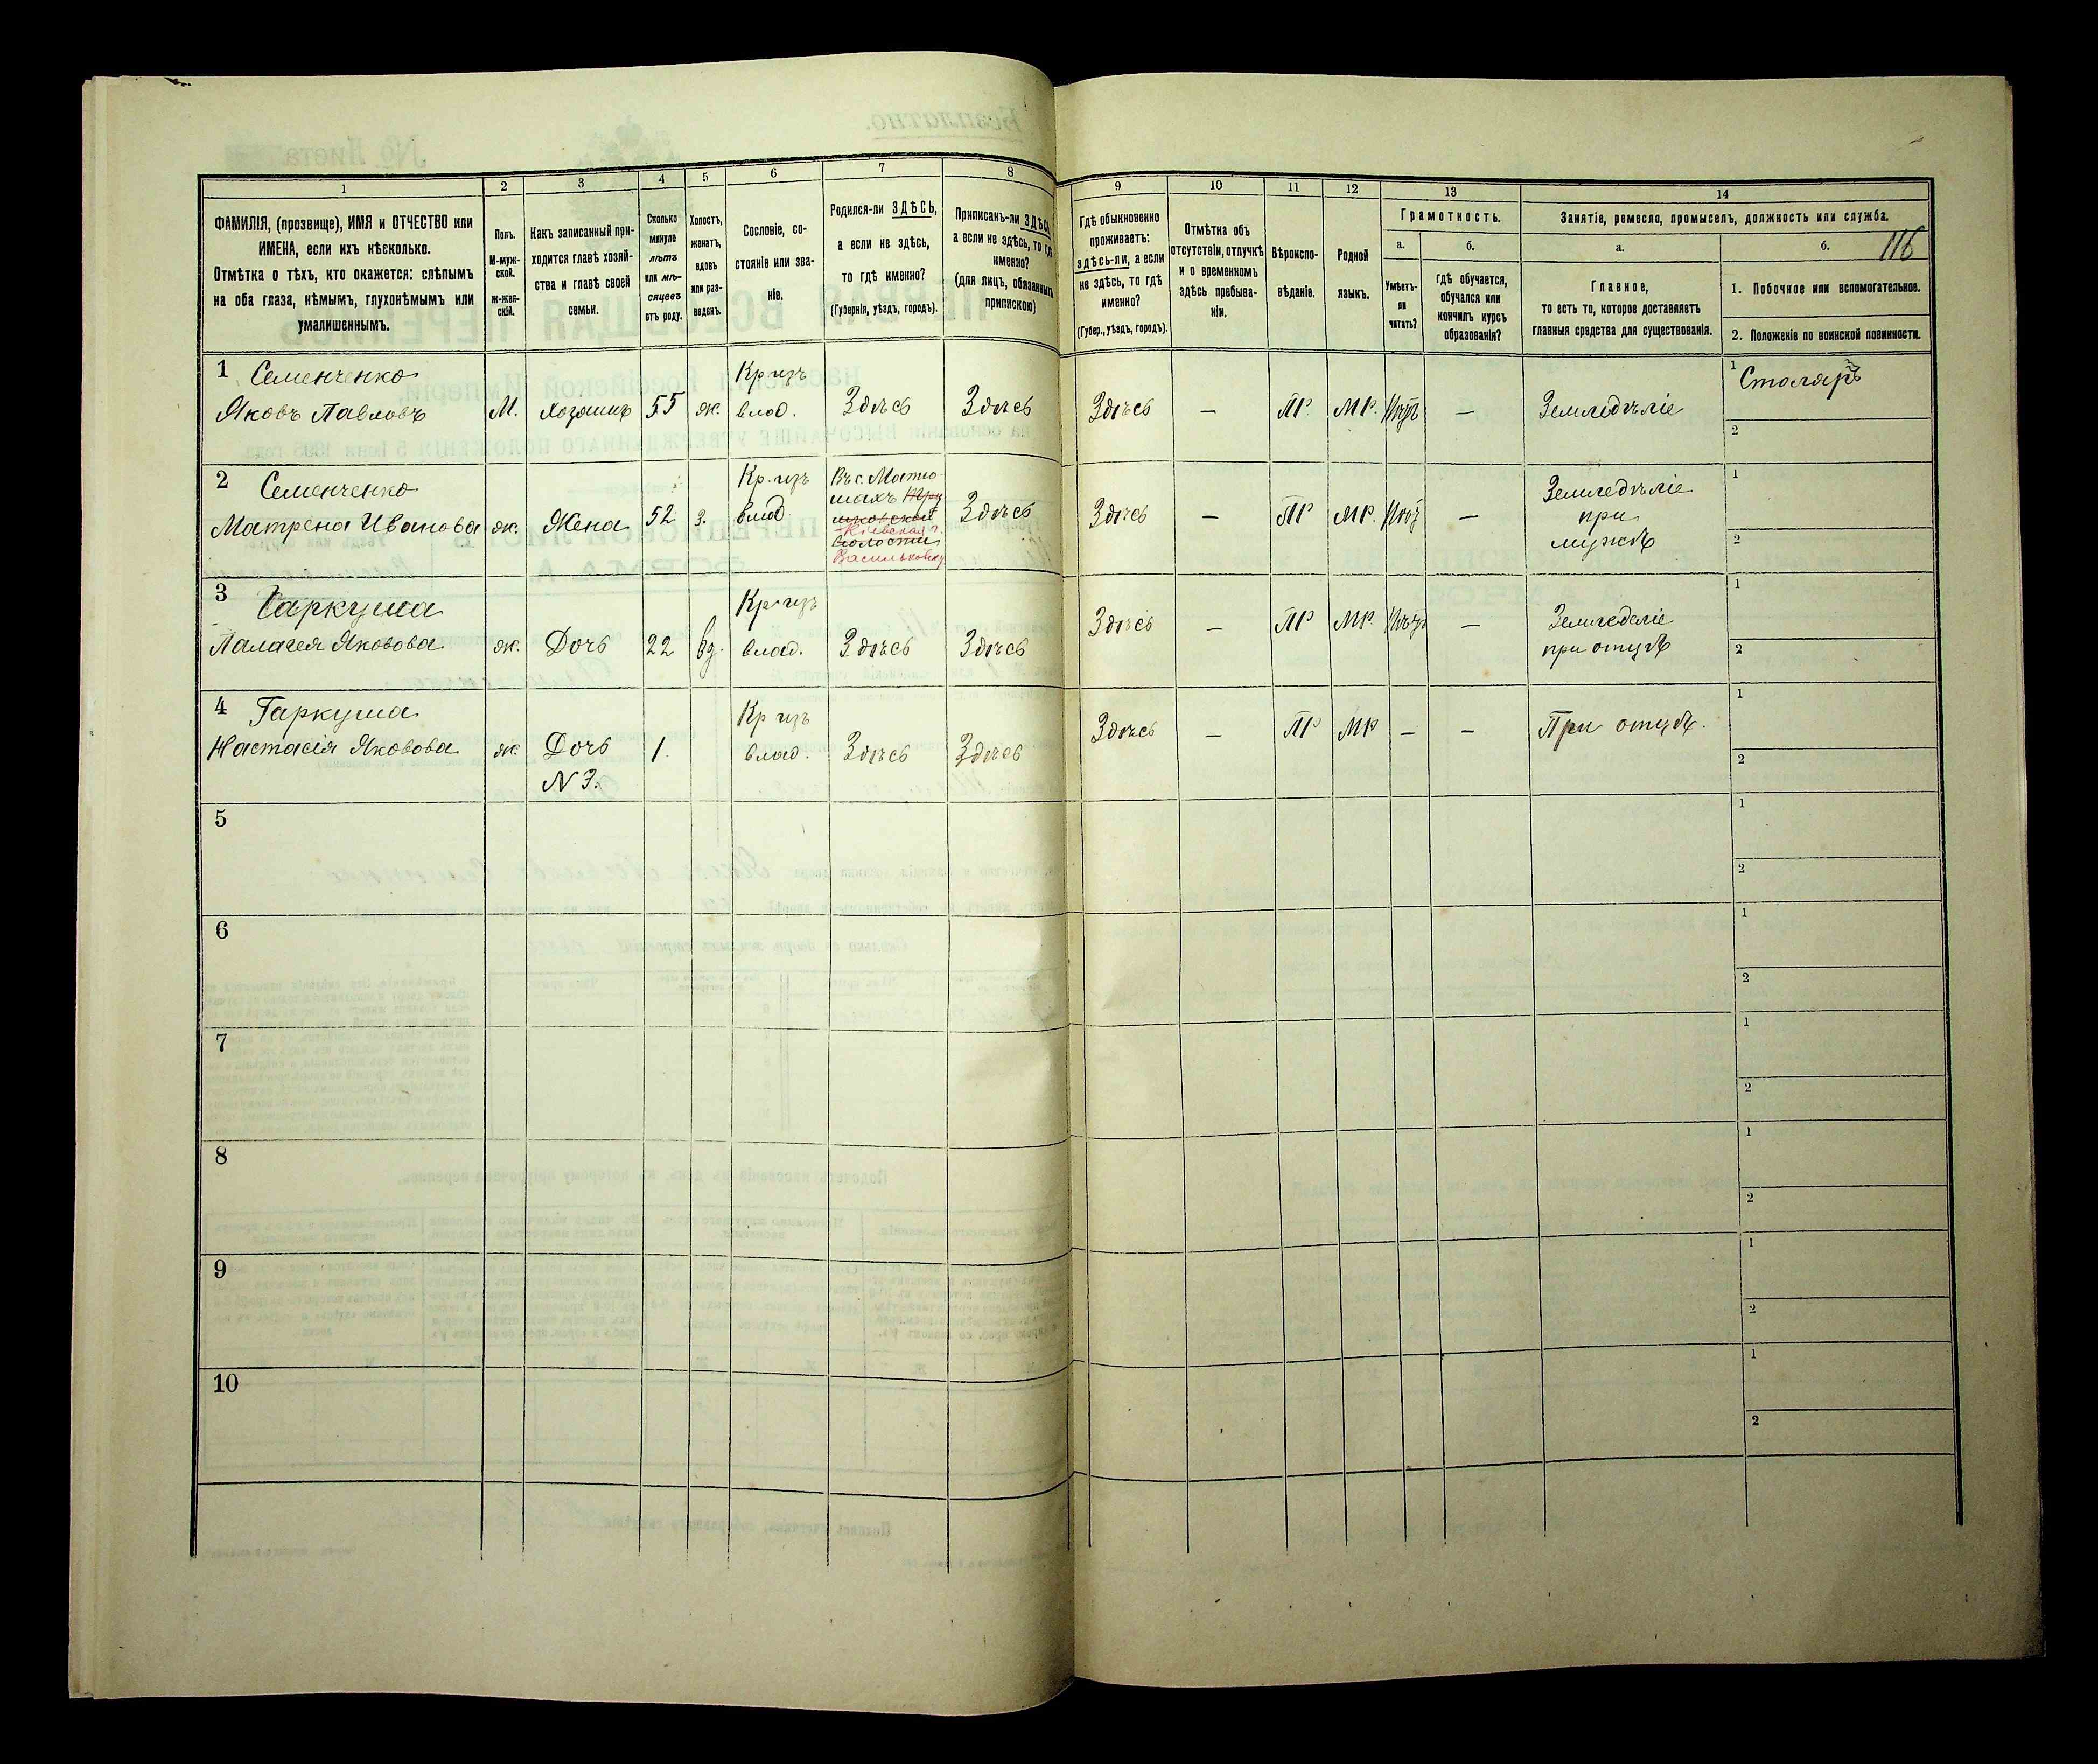 1 2 3 4 5 6 7 8 9 10 11 12 13 14
116
ФАМИЛІЯ, (прозвище), ИМЯ и ОТЧЕСТВО или
ИМЕНА, если ихъ нѣсколько.
Отмѣтка о тѣхъ, кто окажется: слѣпымъ
на оба глаза, нѣмымъ, глухонѣмымъ или
умалишеннымъ.
Полъ.
М-муж-
ской.
ж-жен-
скій.
Какъ записанный при-
ходится главѣ хозяй-
ства и главѣ своей
семьи.
Сколько
минуло
лѣтъ
или мѣ-
сяцевъ
отъ роду.
Холостъ,
женатъ,
вдовъ
или раз-
веденъ.
Сословіе, со-
стояніе или зва-
ніе.
Родился-ли ЗДѢСЬ,
а если не здѣсь,
то гдѣ именно?
(Губернія, уѣздъ, городъ).
Приписанъ-ли ЗДѢСЬ,
а если не здѣсь, то гдѣ
именно?
(для лицъ, обязанныхъ
припискою)
Гдѣ обыкновенно
проживаетъ:
здѣсь-ли, а если
не здѣсь, то гдѣ
именно?
(Губер., уѣздъ, городъ).
Отмѣтка объ
отсутствіи, отлучкѣ
и о временномъ
здѣсь пребыва-
ніи.
Вѣроиспо-
вѣданіе.
Родной
языкъ.
Грамотность.
а.
Умѣетъ-
ли
читать?
б.
гдѣ обучается,
обучался или
кончилъ курсъ
образованія?
Занятіе, ремесло, промыселъ, должность или служба.
а.
Главное,
то есть то, которое доставляетъ
главныя средства для существованія.
б.
1. Побочное или вспомогательное.
2. Положеніе по воинской повинности.
1 Семенченко
Яковъ Павловъ
М.
хозяинъ
55
ж.
Кр. изъ
влад.
Здѣсь
Здѣсь
Здѣсь
—
ПР.
МР.
Нѣтъ
—
Земледѣліе
1 Столяръ
2
2 Семенченко
Матрена Иванова
ж.
Жена
52
з.
Кр. изъ
влад.
Въ с. Матю-
шахъ
Кіевская г.
волости
Васильковск. у.
Здѣсь
Здѣсь
—
ПР
МР.
Нѣтъ
—
Земледѣліе
при
мужѣ
1
2
3 Гаркуша
Палагея Яковова
ж.
Дочь
22
вд.
Кр. изъ
влад.
Здѣсь
Здѣсь
Здѣсь
—
ПР
МР.
Нѣтъ
—
Земледеліе
при отцѣ
1
2
4 Гаркуша
Настасія Яковова
ж.
Дочь
N 3.
1.
Кр изъ
влад.
Здѣсь
Здѣсь
Здѣсь
—
ПР
МР
—
—
При отцѣ.
1
2
5
1
2
6
1
2
7
1
2
8
1
2
9
1
2
10
1
2